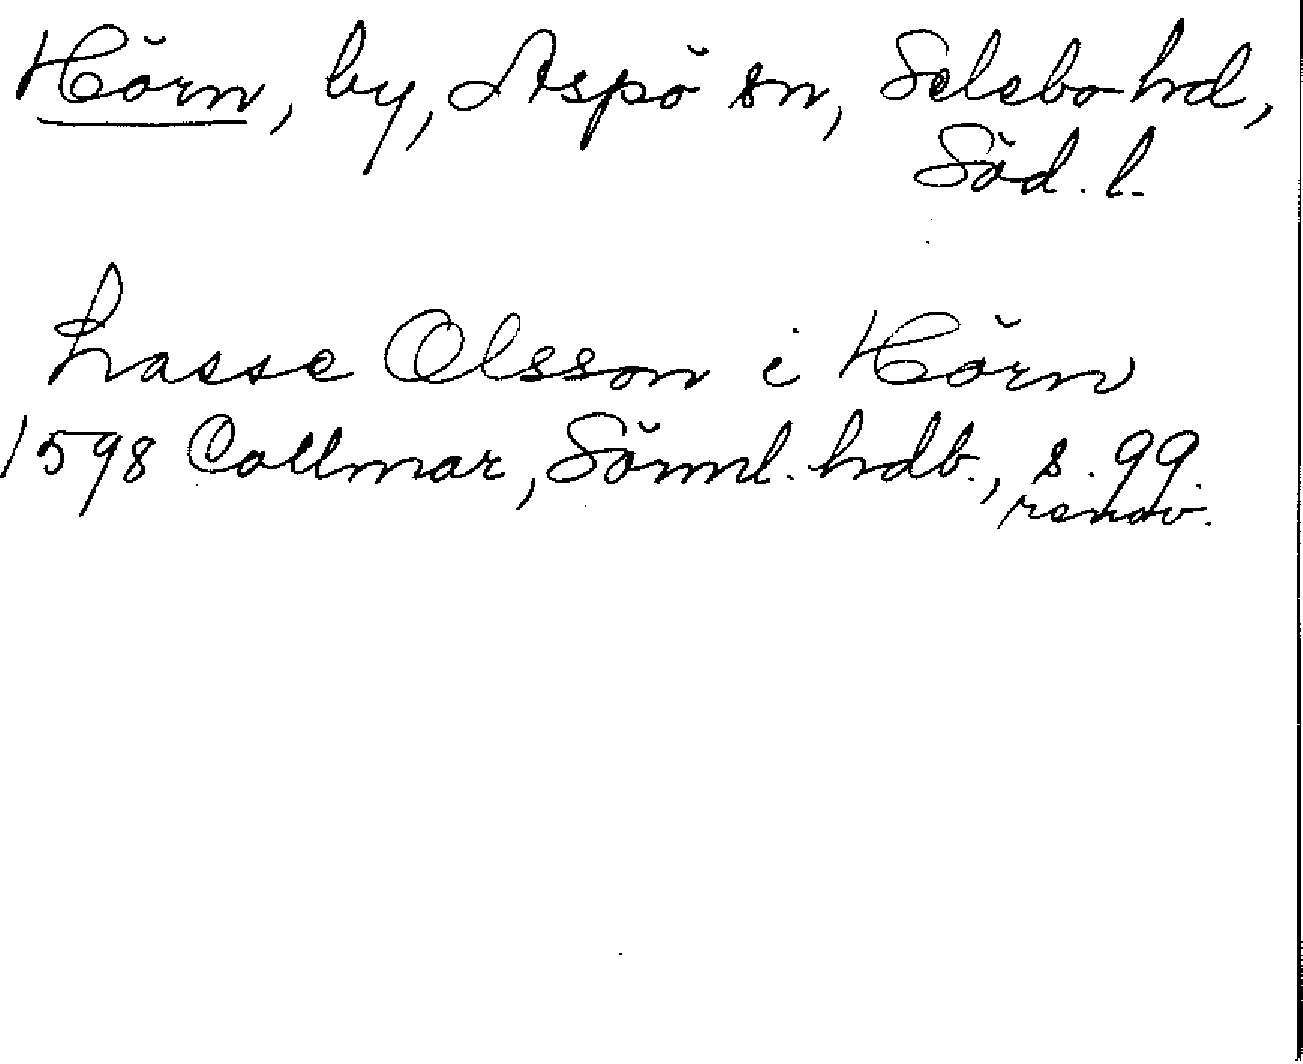 Hörn, by, Aspö sn, Selebo hd,
Söd. l.
Lasse Olsson i Hörn
1598 Collmar, Sörml. hdb., s. 99.
renov.